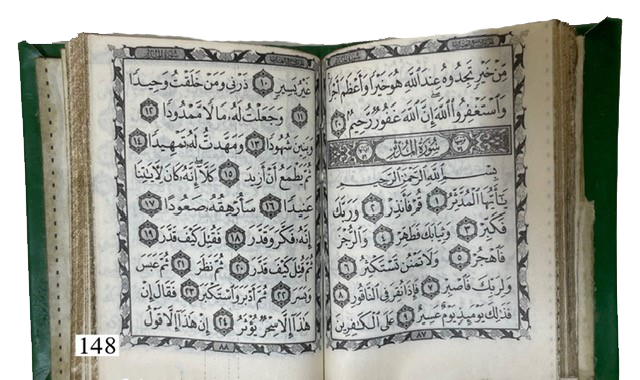 مِنْ خَيْرٍ تَجِدُوهُ عِندَ ٱللَّهِ هُوَ خَيْرًا وَأَعْظَمَ أَجْرًا
وَٱسْتَغْفِرُوا۟ ٱللَّهَ إِنَّ ٱللَّهَ غَفُورٌ رَّحِيمٌ ٢٠
سُورَةُ الْمُدَّثِّرِ
بِسْمِ ٱللَّهِ ٱلرَّحْمَٰنِ ٱلرَّحِيمِ
يَٰٓأَيُّهَا ٱلْمُدَّثِّرُ ١ قُمْ فَأَنذِرْ ٢ وَرَبَّكَ
فَكَبِّرْ ٣ وَثِيَابَكَ فَطَهِّرْ ٤ وَٱلرُّجْزَ
فَٱهْجُرْ ٥ وَلَا تَمْنُن تَسْتَكْثِرُ ٦
وَلِرَبِّكَ فَٱصْبِرْ ٧ فَإِذَا نُقِرَ فِى ٱلنَّاقُورِ ٨
فَذَٰلِكَ يَوْمَئِذٍ يَوْمٌ عَسِيرٌ ٩ عَلَى ٱلْكَٰفِرِينَ
٨٧
غَيْرُ يَسِيرٍ ١٠ ذَرْنِى وَمَنْ خَلَقْتُ وَحِيدًا
١١ وَجَعَلْتُ لَهُۥ مَالًا مَّمْدُودًا ١٢
وَبَنِينَ شُهُودًا ١٣ وَمَهَّدتُّ لَهُۥ تَمْهِيدًا ١٤
ثُمَّ يَطْمَعُ أَنْ أَزِيدَ ١٥ كَلَّآ إِنَّهُۥ كَانَ لِءَايَٰتِنَا
عَنِيدًا ١٦ سَأُرْهِقُهُۥ صَعُودًا ١٧
إِنَّهُۥ فَكَّرَ وَقَدَّرَ ١٨ فَقُتِلَ كَيْفَ قَدَّرَ ١٩
ثُمَّ قُتِلَ كَيْفَ قَدَّرَ ٢٠ ثُمَّ نَظَرَ ٢١ ثُمَّ عَبَسَ
وَبَسَرَ ٢٢ ثُمَّ أَدْبَرَ وَٱسْتَكْبَرَ ٢٣ فَقَالَ إِنْ
هَٰذَآ إِلَّا سِحْرٌ يُؤْثَرُ ٢٤ إِنْ هَٰذَآ إِلَّا قَوْلُ
٨٨
148